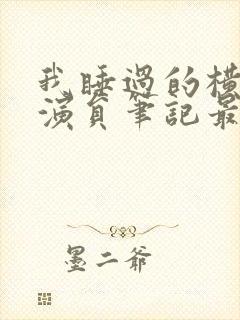 我睡過的橫
演員筆記最
墨二爺